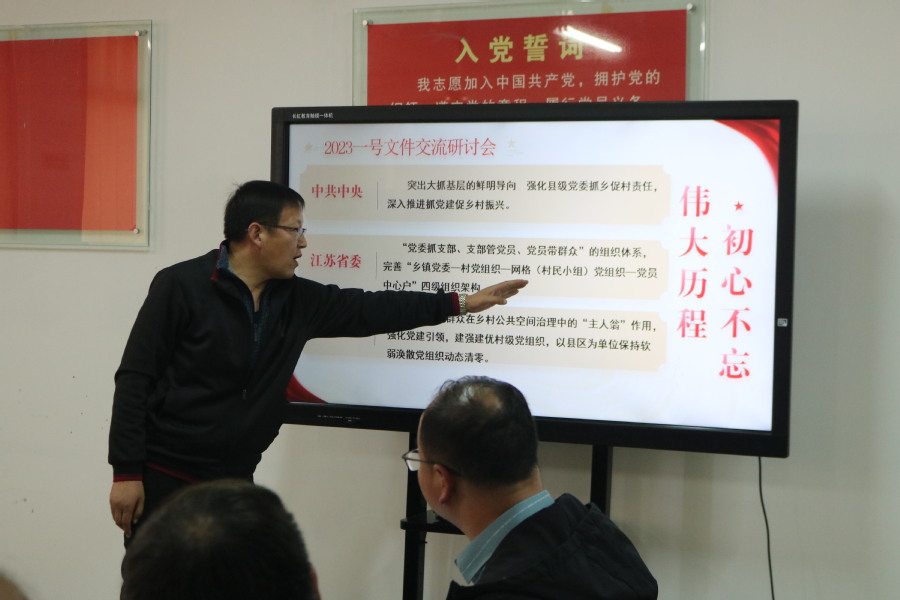 入党誓词
我志愿加入中国共产党，拥护党的
长虹教育触摸一体机
2023一号文件交流研讨会
中共中央
突出大抓基层的鲜明导向 强化县级党委抓乡促村责任，
深入推进抓党建促乡村振兴。
江苏省委
“党委抓支部、支部管党员、党员带群众”的组织体系，
完善“乡镇党委—村党组织—网格（村民小组）党组织—党员
中心户”四级组织架构
群众在乡村公共空间治理中的“主人翁”作用，
强化党建引领，建强建优村级党组织，以县区为单位保持软
弱涣散党组织动态清零。
初心不忘
伟大历程